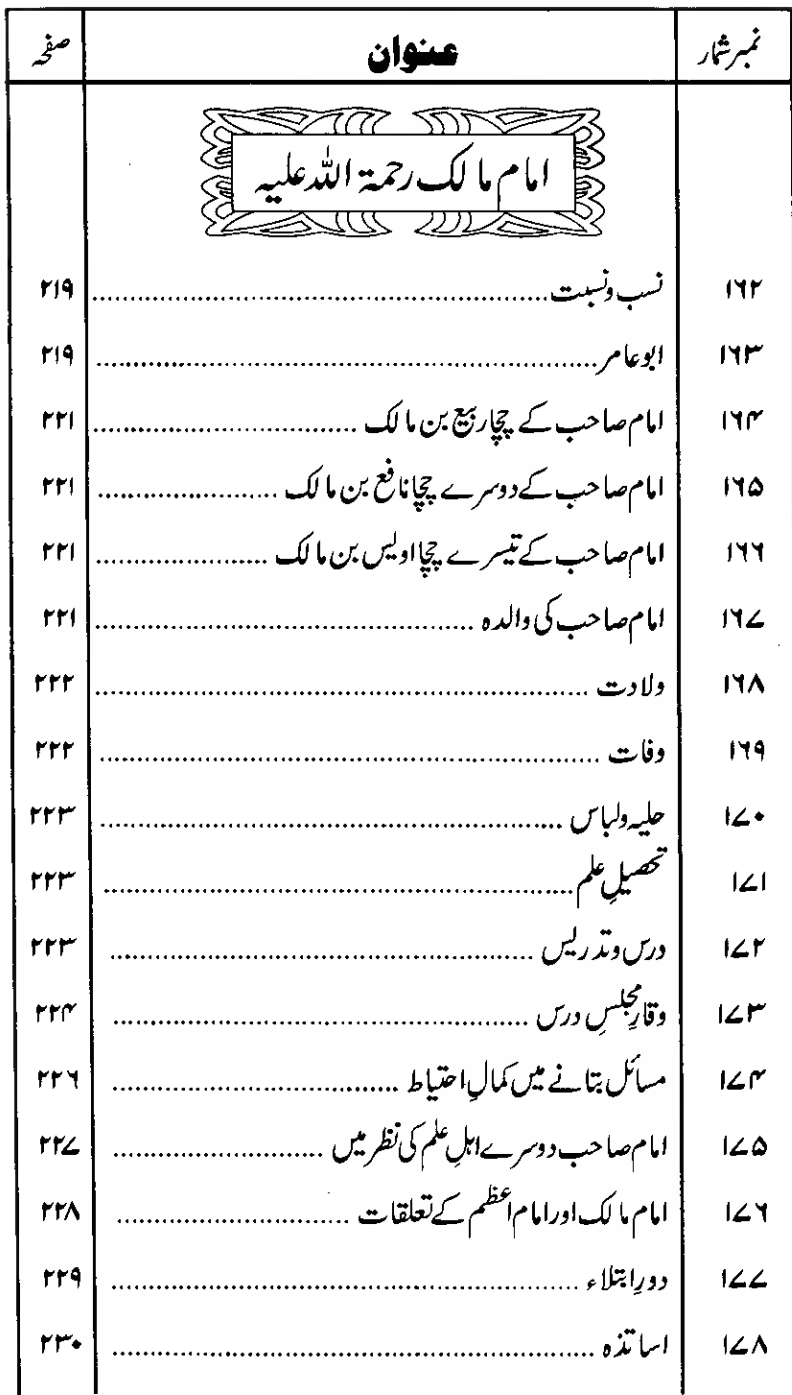 نمبرشمار عنوان صفحہ
امام مالک رحمۃ اللہ علیہ
۱۶۲ نسب ونسبت ۲۱۹
۱۶۳ ابوعامر ۲۱۹
۱۶۴ امام صاحب کے چچا ربیع بن مالک ۲۲۱
۱۶۵ امام صاحب کے دوسرے چچا نافع بن مالک ۲۲۱
۱۶۶ امام صاحب کے تیسرے چچا اویس بن مالک ۲۲۱
۱۶۷ امام صاحب کی والدہ ۲۲۱
۱۶۸ ولادت ۲۲۲
۱۶۹ وفات ۲۲۲
۱۷۰ حلیہ ولباس ۲۲۳
۱۷۱ تحصیلِ علم ۲۲۳
۱۷۲ درس وتدریس ۲۲۳
۱۷۳ وقارِ مجلسِ درس ۲۲۴
۱۷۴ مسائل بتانے میں کمالِ احتیاط ۲۲۶
۱۷۵ امام صاحب دوسرے اہلِ علم کی نظر میں ۲۲۷
۱۷۶ امام مالک اور امام اعظم کے تعلقات ۲۲۸
۱۷۷ دورِ ابتلاء ۲۲۹
۱۷۸ اساتذہ ۲۳۰